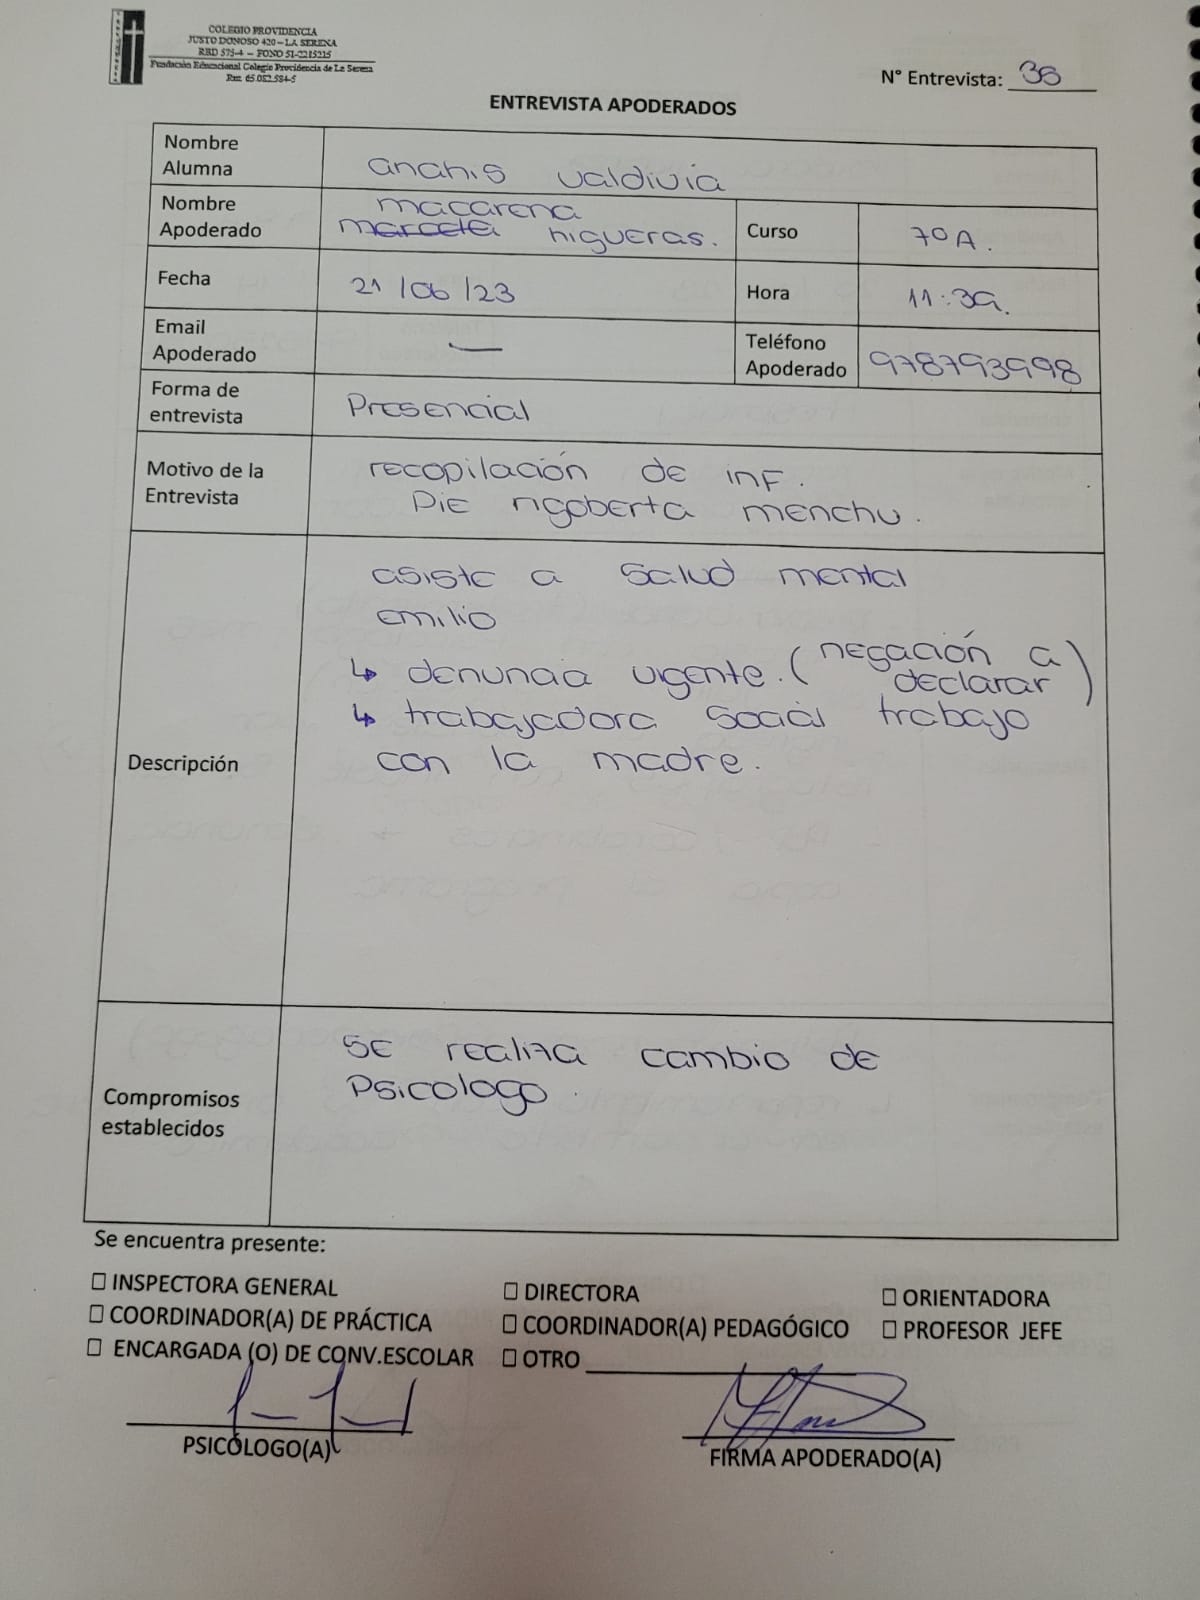 COLEGIO PROVIDENCIA
JUSTO DONOSO 420 – LA SERENA
RBD 575-4 – FONO 51-2215215
Fundación Educacional Colegio Providencia de La Serena
Rut: 65.082.584-5
N° Entrevista: 36
ENTREVISTA APODERADOS
Nombre Alumna
anahis valdivia
Nombre Apoderado
macarena
marcela higueras.
Curso
7ºA.
Fecha
21/06/23
Hora
11:39.
Email Apoderado
—
Teléfono Apoderado
978793998
Forma de entrevista
Presencial
Motivo de la Entrevista
recopilación de inf.
Pie rigoberta menchu.
Descripción
asiste a salud mental
emilio
↳ denuncia urgente. (negación a declarar)
↳ trabajadora social trabajo
con la madre.
Compromisos establecidos
se realiza cambio de
Psicologo.
Se encuentra presente:
☐ INSPECTORA GENERAL ☐ DIRECTORA ☐ ORIENTADORA
☐ COORDINADOR(A) DE PRÁCTICA ☐ COORDINADOR(A) PEDAGÓGICO ☐ PROFESOR JEFE
☐ ENCARGADA (O) DE CONV.ESCOLAR ☐ OTRO
PSICÓLOGO(A)
FIRMA APODERADO(A)